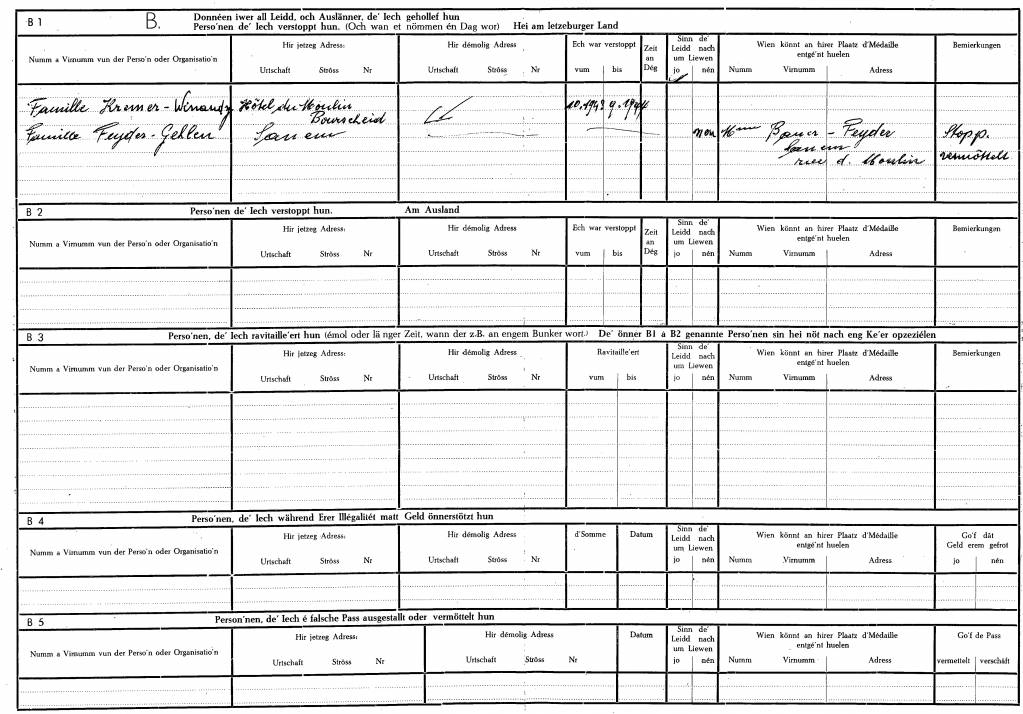 B 1
B.
Donnéen iwer all Leidd, och Auslänner, de' Iech gehollef hun
Perso'nen de' Iech verstoppt hun. (Och wan et nömmen én Dag wor) Hei am letzeburger Land
Numm a Virnumm vun der Perso'n oder Organisatio'n
Hir jetzeg Adress:
Urtschaft Ströss Nr
Hir démolig Adress
Urtschaft Ströss Nr
Ech war verstoppt
vum bis
Zeit
an
Dég
Sinn de'
Leidd nach
um Liewen
jo nén
Wien könnt an hirer Plaatz d'Médaille
entgé'nt huelen
Numm Virnumm Adress
Bemierkungen
Famille Kremer-Winandy Hôtel du Moulin
Bourscheid
10.1943 9.1944
Famille Feyder-Gellen Sanem
non Mme Bauer - Feyder
Sanem
rue d. Moulin
Stopp.
vermöttelt
B 2
Perso'nen de' Iech verstoppt hun. Am Ausland
Numm a Virnumm vun der Perso'n oder Organisatio'n
Hir jetzeg Adress:
Urtschaft Ströss Nr
Hir démolig Adress
Urtschaft Ströss Nr
Ech war verstoppt
vum bis
Zeit
an
Dég
Sinn de'
Leidd nach
um Liewen
jo nén
Wien könnt an hirer Plaatz d'Médaille
entgé'nt huelen
Numm Virnumm Adress
Bemierkungen
B 3
Perso'nen, de' Iech ravitaille'ert hun (émol oder lä nger Zeit, wann der z.B. an engem Bunker wort.) De' önner B1 a B2 genannte Perso'nen sin hei nöt nach eng Ke'er opzeziélen
Numm a Virnumm vun der Perso'n oder Organisatio'n
Hir jetzeg Adress:
Urtschaft Ströss Nr
Hir démolig Adress
Urtschaft Ströss Nr
Ravitaille'ert
vum bis
Sinn de'
Leidd nach
um Liewen
jo nén
Wien könnt an hirer Plaatz d'Médaille
entgé'nt huelen
Numm Virnumm Adress
Bemierkungen
B 4
Perso'nen, de' Iech während Erer Illégalitét matt Geld önnerstötzt hun
Numm a Virnumm vun der Perso'n oder Organisatio'n
Hir jetzeg Adress:
Urtschaft Ströss Nr
Hir démolig Adress
Urtschaft Ströss Nr
d'Somme
Datum
Sinn de'
Leidd nach
um Liewen
jo nén
Wien könnt an hirer Plaatz d'Médaille
entgé'nt huelen
Numm Virnumm Adress
Go'f dât
Geld erem gefrot
jo nén
B 5
Person'nen, de' Iech é falsche Pass ausgestallt oder vermöttelt hun
Numm a Virnumm vun der Perso'n oder Organisatio'n
Hir jetzeg Adress:
Urtschaft Ströss Nr
Hir démolig Adress
Urtschaft Ströss Nr
Datum
Sinn de'
Leidd nach
um Liewen
jo nén
Wien könnt an hirer Plaatz d'Médaille
entgé'nt huelen
Numm Virnumm Adress
Go'f de Pass
vermettelt verschâft